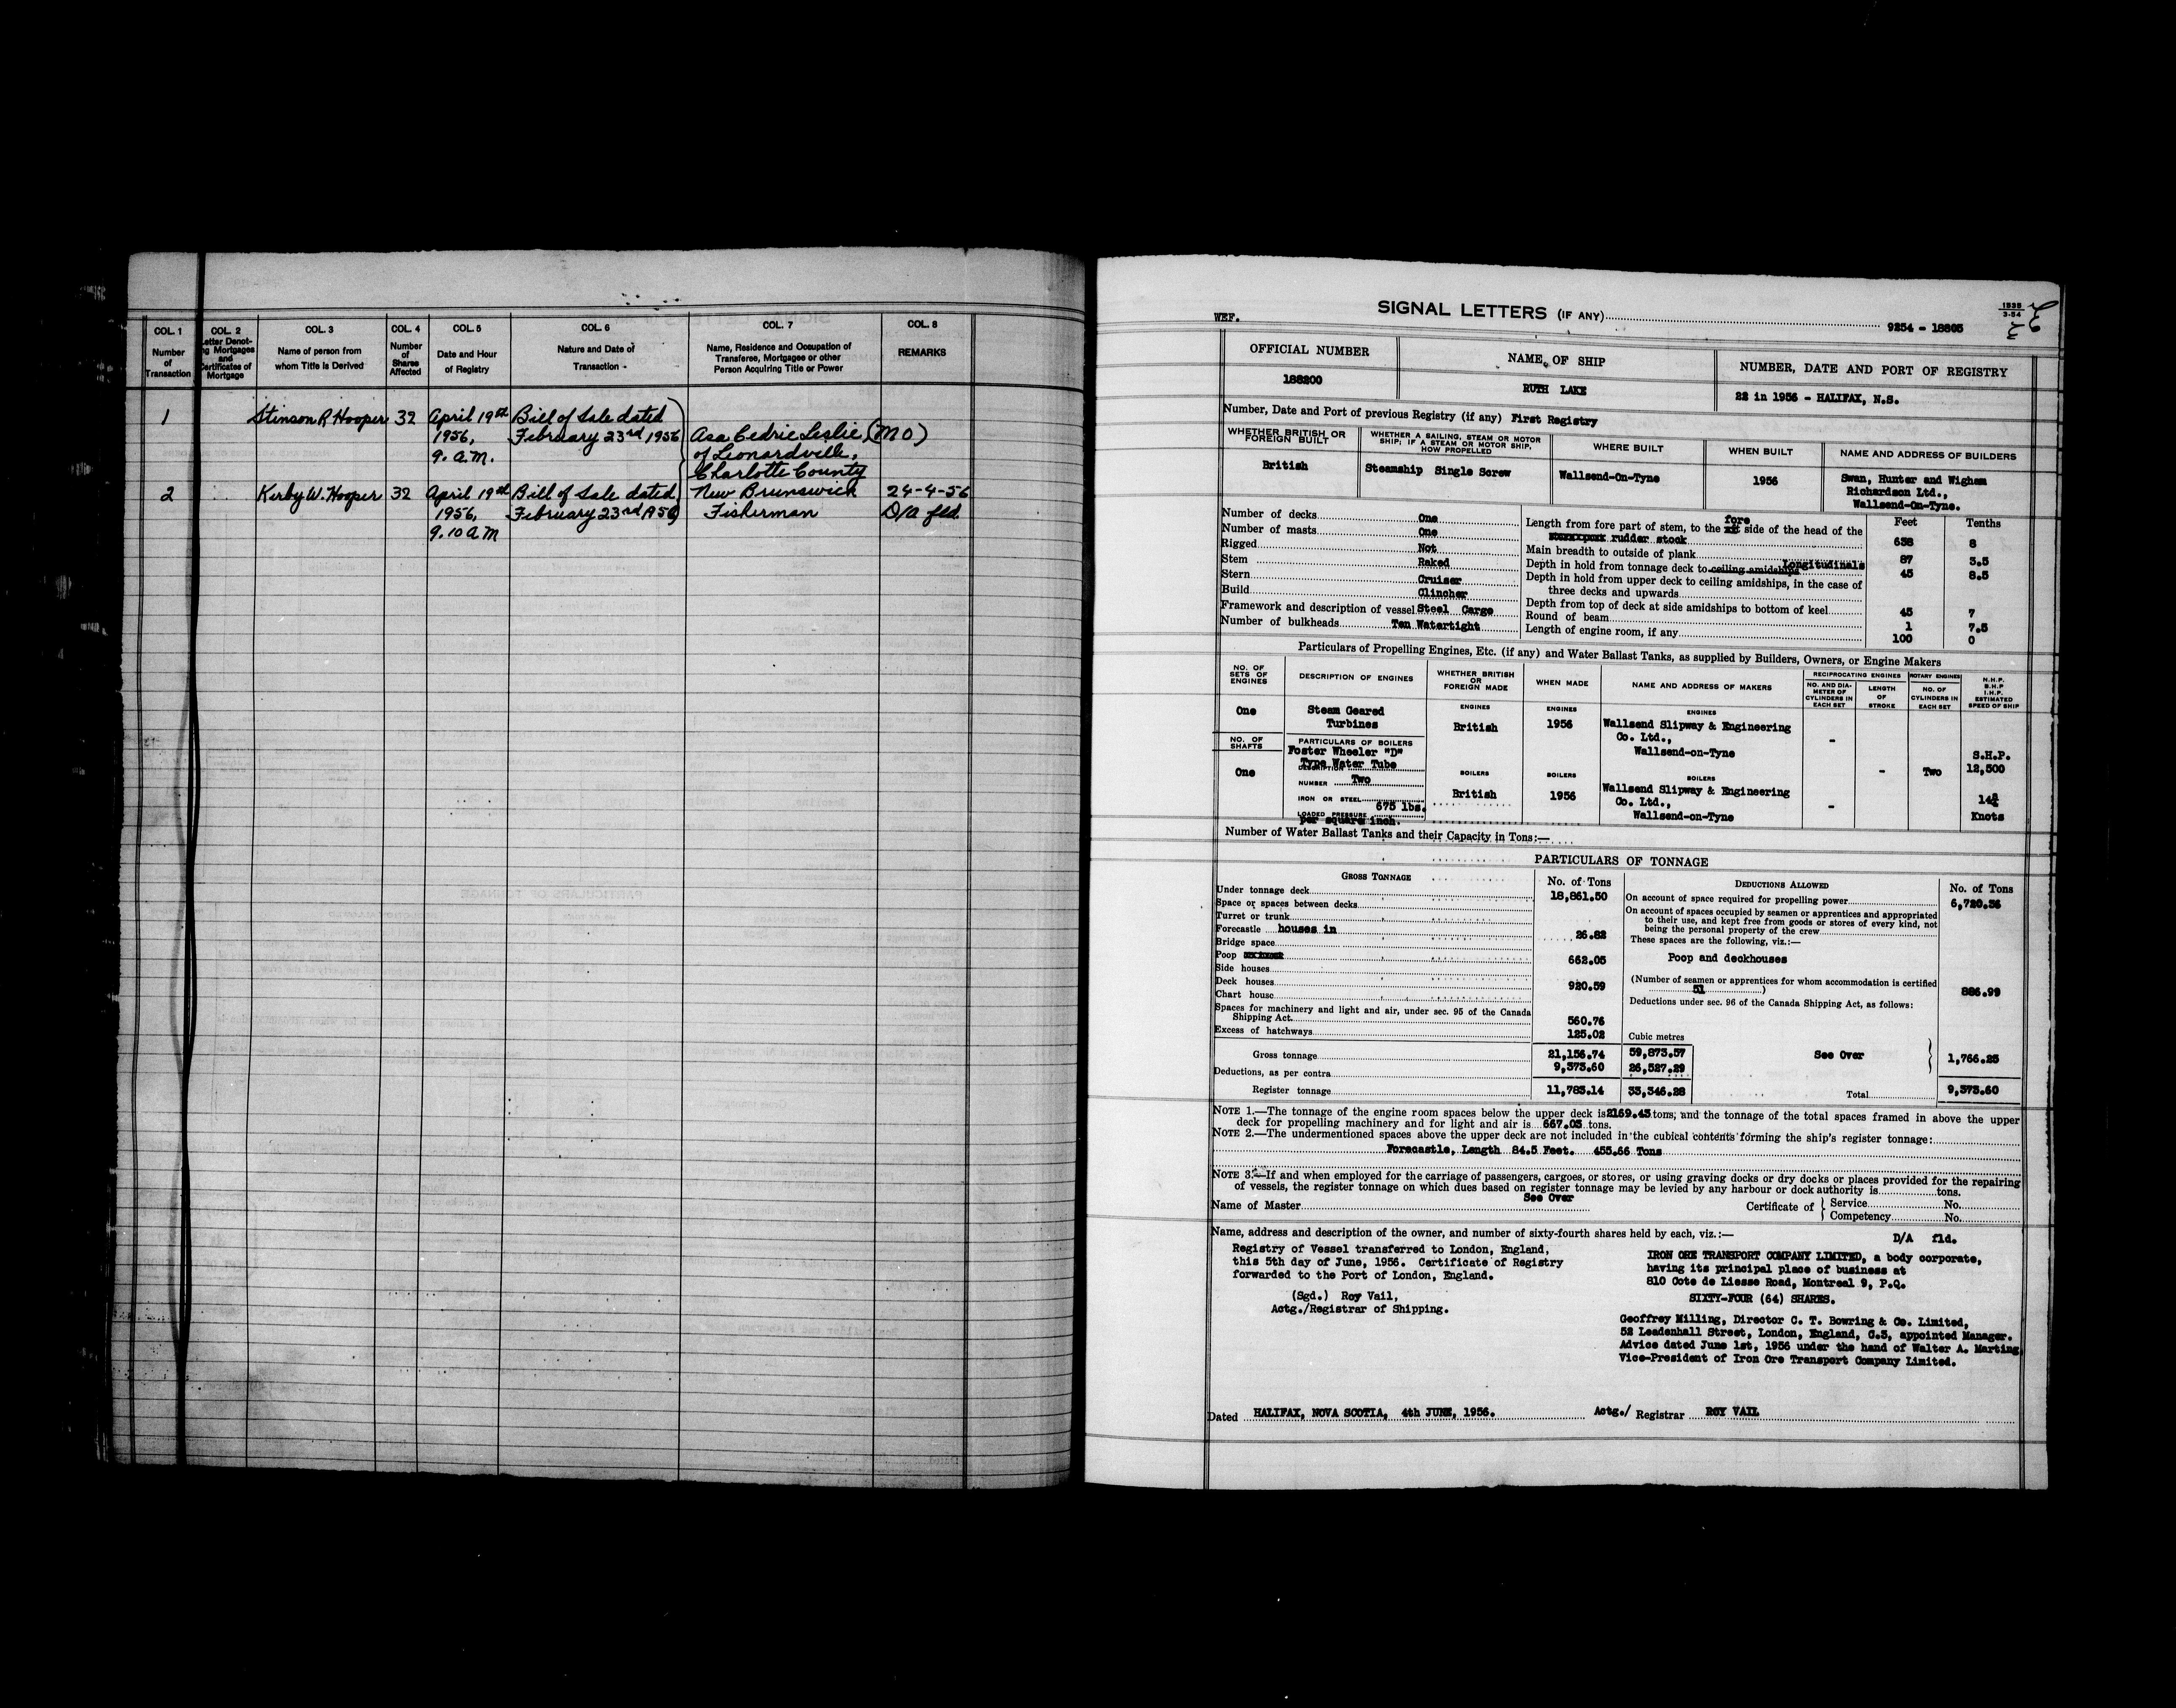 COL. 1 COL. 2 COL. 3 COL. 4 COL. 5 COL. 6 COL. 7 COL. 8
Number of Transaction
Letter Denoting Mortgages and Certificates of Mortgage
Name of person from whom Title is Derived
Number of Shares Affected
Date and Hour of Registry
Nature and Date of Transaction
Name, Residence and Occupation of Transferee, Mortgagee or other Person Acquiring Title or Power
REMARKS
1 Stinson R Hooper 32 April 19th Bill of Sale dated
1956, February 23rd 1956 Asa Cedric Leslie, (M O)
9. a.m. of Leonardville,
Charlotte County
2 Kerby W. Hooper 32 April 19th Bill of Sale dated New Brunswick 24-4-56
1956, February 23rd 1956 Fisherman D/a fld.
9.10 a m
1535
3-54
WEF. SIGNAL LETTERS (IF ANY) 9254 - 18805
OFFICIAL NUMBER NAME OF SHIP NUMBER, DATE AND PORT OF REGISTRY
188200 RUTH LAKE 22 in 1956 - HALIFAX, N.S.
Number, Date and Port of previous Registry (if any) First Registry
WHETHER BRITISH OR FOREIGN BUILT
WHETHER A SAILING, STEAM OR MOTOR SHIP; IF A STEAM OR MOTOR SHIP, HOW PROPELLED
WHERE BUILT WHEN BUILT NAME AND ADDRESS OF BUILDERS
British Steamship Single Screw Wallsend-On-Tyne 1956 Swan, Hunter and Wigham
Richardson Ltd.,
Wallsend-On-Tyne.
Feet Tenths
Number of decks One
Number of masts One
Rigged Not
Stem Raked
Stern Cruiser
Build Clincher
Framework and description of vessel Steel Cargo
Number of bulkheads Ten Watertight
Length from fore part of stem, to the fore side of the head of the
rudder stock 658 8
Main breadth to outside of plank 87 3.5
Depth in hold from tonnage deck to ceiling amidships Longitudinals 45 8.5
Depth in hold from upper deck to ceiling amidships, in the case of
three decks and upwards
Depth from top of deck at side amidships to bottom of keel 45 7
Round of beam 1 7.5
Length of engine room, if any 100 0
Particulars of Propelling Engines, Etc. (if any) and Water Ballast Tanks, as supplied by Builders, Owners, or Engine Makers
NO. OF SETS OF ENGINES
DESCRIPTION OF ENGINES
WHETHER BRITISH OR FOREIGN MADE
WHEN MADE
NAME AND ADDRESS OF MAKERS
RECIPROCATING ENGINES
NO. AND DIAMETER OF CYLINDERS IN EACH SET
LENGTH OF STROKE
ROTARY ENGINES
NO. OF CYLINDERS IN EACH SET
N.H.P.
B.H.P
I.H.P.
ESTIMATED SPEED OF SHIP
ENGINES ENGINES ENGINES
One Steam Geared Turbines British 1956 Wallsend Slipway & Engineering
Co. Ltd.,
Wallsend-on-Tyne -
NO. OF SHAFTS
PARTICULARS OF BOILERS
Foster Wheeler "D"
Type Water Tube
DESCRIPTION
S.H.P.
One - Two 12,500
NUMBER Two
BOILERS BOILERS BOILERS
IRON OR STEEL
British 1956 Wallsend Slipway & Engineering
Co. Ltd.,
Wallsend-on-Tyne -
675 lbs.
LOADED PRESSURE
per square inch.
14¾
Knots
Number of Water Ballast Tanks and their Capacity in Tons:—
PARTICULARS OF TONNAGE
GROSS TONNAGE No. of Tons
Under tonnage deck 18,861.50
Space or spaces between decks
Turret or trunk
Forecastle houses in 26.82
Bridge space
Poop 662.05
Side houses
Deck houses 920.59
Chart house
Spaces for machinery and light and air, under sec. 95 of the Canada
Shipping Act 560.76
Excess of hatchways 125.02 Cubic metres
Gross tonnage 21,156.74 59,873.57
Deductions, as per contra 9,373.60 26,527.29
Register tonnage 11,783.14 33,346.28
DEDUCTIONS ALLOWED No. of Tons
On account of space required for propelling power 6,720.36
On account of spaces occupied by seamen or apprentices and appropriated
to their use, and kept free from goods or stores of every kind, not
being the personal property of the crew
These spaces are the following, viz.:—
Poop and deckhouses
(Number of seamen or apprentices for whom accommodation is certified
51 ) 886.99
Deductions under sec. 96 of the Canada Shipping Act, as follows:
See Over 1,766.25
Total 9,373.60
NOTE 1.—The tonnage of the engine room spaces below the upper deck is 2169.43 tons; and the tonnage of the total spaces framed in above the upper
deck for propelling machinery and for light and air is 667.03 tons.
NOTE 2.—The undermentioned spaces above the upper deck are not included in the cubical contents forming the ship's register tonnage:
Forecastle, Length 84.5 Feet. 455.66 Tons
NOTE 3.—If and when employed for the carriage of passengers, cargoes, or stores, or using graving docks or dry docks or places provided for the repairing
of vessels, the register tonnage on which dues based on register tonnage may be levied by any harbour or dock authority is tons.
See Over
Name of Master Certificate of Service No.
Competency No.
Name, address and description of the owner, and number of sixty-fourth shares held by each, viz.:— D/A fld.
Registry of Vessel transferred to London, England,
this 5th day of June, 1956. Certificate of Registry
forwarded to the Port of London, England.
(Sgd.) Roy Vail,
Actg./Registrar of Shipping.
IRON ORE TRANSPORT COMPANY LIMITED, a body corporate,
having its principal place of business at
810 Cote de Liesse Road, Montreal 9, P.Q.
SIXTY-FOUR (64) SHARES.
Geoffrey Milling, Director C. T. Bowring & Co. Limited,
52 Leadenhall Street, London, England, C.3, appointed Manager.
Advice dated June 1st, 1956 under the hand of Walter A. Marting
Vice-President of Iron Ore Transport Company Limited.
Dated HALIFAX, NOVA SCOTIA, 4th JUNE, 1956. Actg./ Registrar ROY VAIL